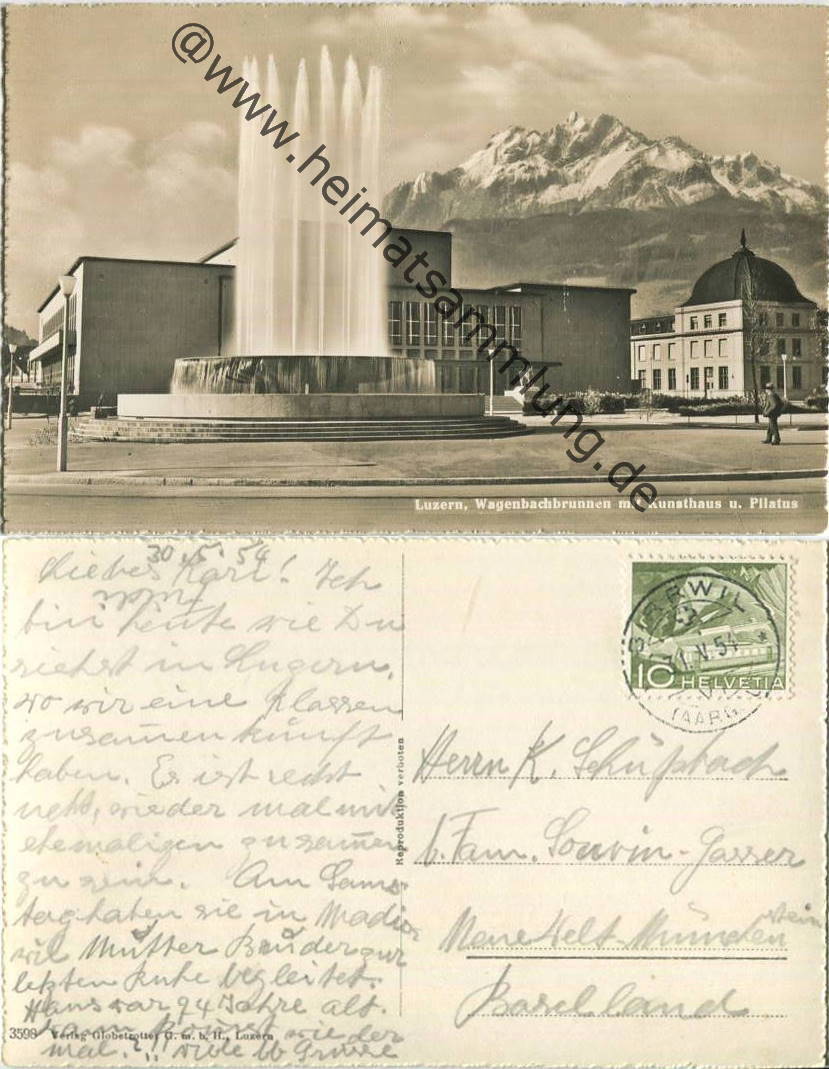 @www.heimatsammlung.de
Luzern, Wagenbachbrunnen mit Kunsthaus u. Pilatus
30. 5. 54
Lieber Karl! Ich
bin heute wie Du
siehst in Luzern,
wo wir eine Klassen
zusammenkunft
haben. Es ist recht
nett, wieder mal mit
ehemaligen zusammen
zu sein. Am Sams-
tag haben sie in
wil Mutter Bruder zur
letzten Ruhe begleitet.
Hans war 94 Jahre alt.
wieder
mal.?!! viele lb Grüsse
3598 Verlag Globetrotter G. m. b. H., Luzern
Reproduktion verboten
1.V.54
(AARG.)
10 HELVETIA
Herrn K. Schüpbach
b. Fam. Souvin-Gasser
Neue Welt-Münchenstein
Baselland